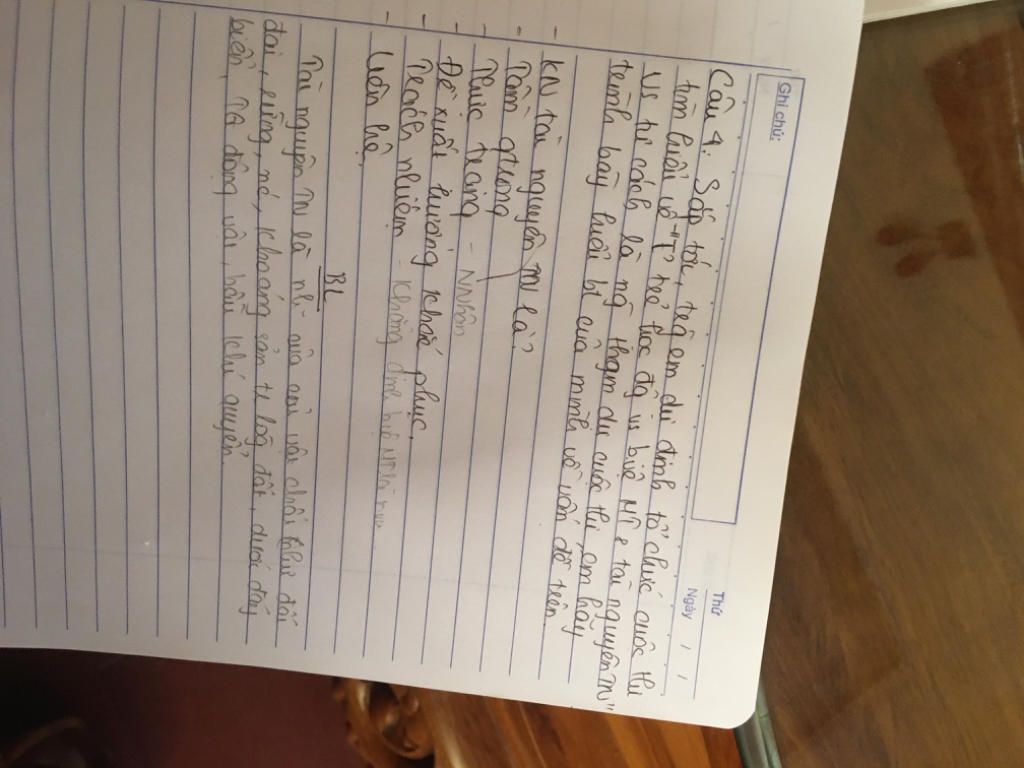 Ghi chú:
Thứ
Ngày / /
Câu 4. Sắp tới, trg em dự định tổ chức cuộc thi
tìm hiểu về "T trẻ
Vs tư cách là ng tham dự cuộc thi, em hãy
trình bày hiểu bt của mình về vấn đề trên
- KN tài nguyên TN là?
- Tầm qtrọng
- Thực trạng - NNhân
- Đề xuất hướng khắc phục.
- Trách nhiệm - khẳng định
- Liên hệ.
BL
Tài nguyên TN là nh của cải vật chất như đất
đai, rừng, nc, khoáng sản tr lòg đất, dưới đáy
biển, TG động vật, bầu khí quyển.